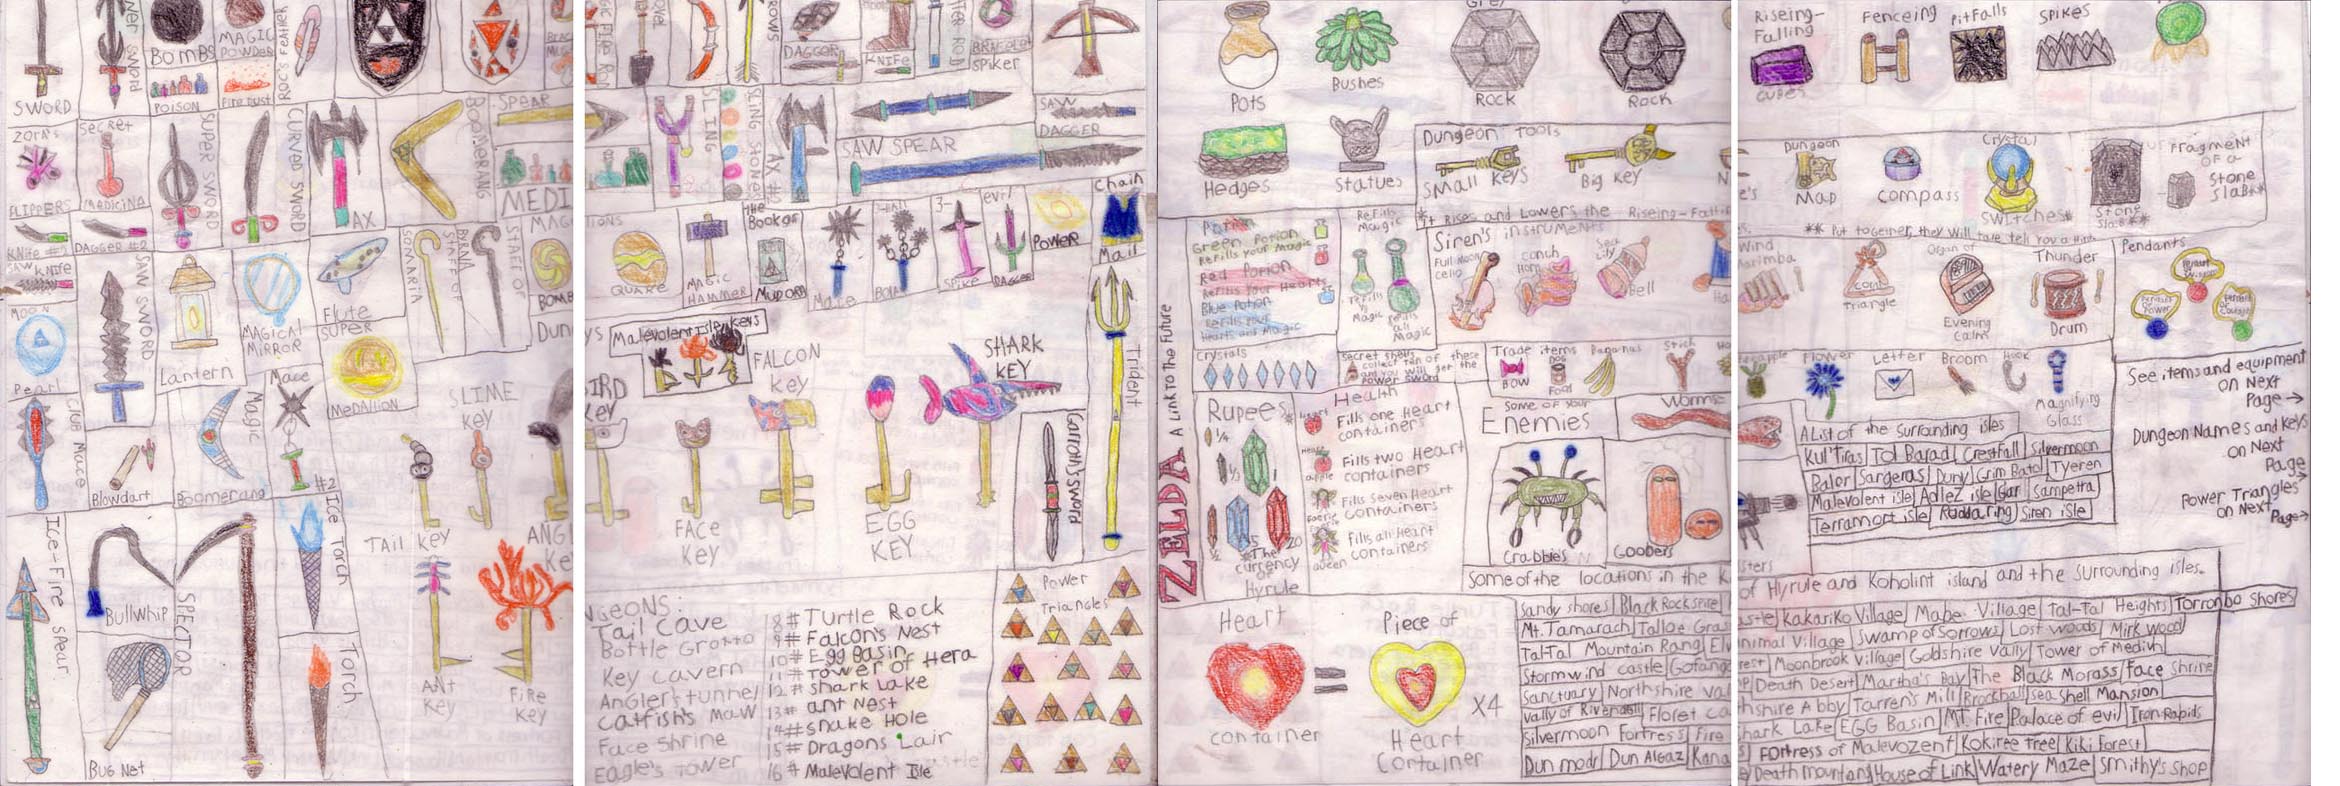 SWORD
BOMBS
MAGIC
POWDER
ROC'S FEATHER
POISON
Fire Dust
Secret
MEDICINA
FLIPPERS
SUPER SWORD
CURVED SWORD
AX
BOOMERANG
SPEAR
MEDI
KNife #2
DAGGER #2
SAW KNife
SAW SWORD
Lantern
MAGICAL
MIRROR
Flute
SOMARIA
STAFF OF
BYRNA
STAFF OF
BOMB
MOON
Pearl
Club Mace
Blowdart
Magic
Boomerang
Mace
#2
SUPER
MeDAllion
SLIME
KEY
TAIL KEY
ANGL
Ke
Ice-Fire SPEAR
BullWhip
SPECTOR
Bug Net
Ice Torch
Torch
ANT
KEY
FiRe
KEY
DAGGOR
KNIFe
BRACELET
Spiker
SLING
SLING STONES
AX #2
SAW SPEAR
SAW
DAGGER
QUAKE
MAGIC
HAMMER
the
Book of
Mudora
Mace
3-
SPIKe
evil
DAGGER
POWER
Chain
Mail
Trident
Malevolent Isle Keys
BIRD
KEY
FALCON
Key
SHARK
KEY
FACE
KEY
EGG
KEY
Garroth's sword
NGEONS:
Tail Cave
Bottle Grotto
Key cavern
Angler's tunnel
Catfish's Maw
Face Shrine
Eagle's Tower
8# Turtle Rock
9# Falcon's Nest
10# Egg Basin
11# Tower of Hera
12# shark Lake
13# ant Nest
14# snake Hole
15# Dragons Lair
16# Malevolent Isle
Power
Triangles
Pots
Bushes
Rock
Rock
Hedges
Statues
Dungeon Tools
SMALL Keys
Big Key
*it Rises and Lowers the Riseing-Falli
Potion
Green Potion
Refills your Magic
Red Potion
Refills your Hearts
Blue Potion
Refills your
Hearts and Magic
Refills
Magic
refills
½
Magic
refills
all
Magic
Siren's instruments
Full moon
cello
Conch
Horn
Sea
Lily
Bell
Crystals
secret shells
collect ten of these
and you will get the
Power sword
Trade items
BOW
Dog
Food
Bananas
Stick
ZELDA A LINK TO THE Future
Rupees*
1/4
1/3
½
5
20
*The
currency
of
Hyrule
Health
Heart
Fills one Heart
containers
Heart
apple
Fills two Heart
containers
Faerie
Fills Seven Heart
containers
queen
Fills all Heart
containers
some of your
Enemies
Worms
Crabbies
Goobers
Some of the locations in the K
Heart
container
Piece of
Heart
Container
X4
Sandy shores Black Rock spire
Mt. Tamarach Talloe Gras
Tal-Tal Mountain Rang Elv
Stormwind castle
Sanctuary Northshire val
Vally of Rivendell Floret ca
Silvermoon Fortress Fire
Dun modr Dun Algaz Kana
Riseing-
Falling
cubes
Fenceing
pitFalls
SPIKES
Dungeon
Map
compass
Crystal
SWitches*
Stone
Slab**
Fragment
of a
Stone
Slab**
** Put together, they will tell you a Hint
Wind
Marimba
Coral
Triangle
Organ of
Evening
Calm
Thunder
Drum
Pendants
Pendant of Wisdom
Pendant of Power
Pendant of Courage
Flower
Letter
Broom
Hook
Magnifying
Glass
See items and equipment
on Next
Page →
Dungeon Names and keys
on Next
Page →
Power Triangles
on Next
Page →
A List of the Surrounding isles
Kul'Tiras Tol Barad Crestfall Silvermoon
Balor Sargeras Duny Grim Batol Tyeren
Malevolent isle AdleZ isle Gar Sampetra
Terramort isle Ruddaring Siren isle
of Hyrule and Koholint island and the Surrounding isles.
astle Kakariko Village Mabe Village Tal-Tal Heights Toronbo Shores
nimal Village Swamp of Sorrows Lost woods Mirk wood
rest Moonbrook Village Goldshire Vally Tower of Medivh
Death Desert Martha's Bay The Black Morass Face Shrine
hshire Abby Tarren's Mill Brockhall sea Shell Mansion
hark Lake EGG Basin Mt. Fire Palace of evil Iron Rapids
Fortress of Malevozent Kokiree tree Kiki Forest
Death mountang House of Link Watery Maze Smithy's Shop